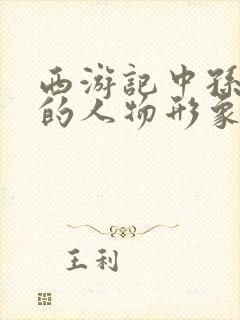 西游记中孙
的人物形象
王利